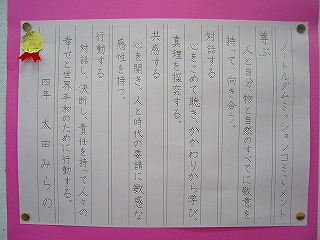 ノートルダムミッションコミットメント
尊ぶ
人と自分、物と自然のすべてに敬意を
持って、向き合う。
対話する
心をこめて聴き、かかわりから学び、
真理を探究する。
共感する
心を開き、人と時代の要請に敏感な
感性を持つ。
行動する
対話し、決断し、責任を持って人々の
幸せと世界平和のために行動する。
四年 太田 みらの